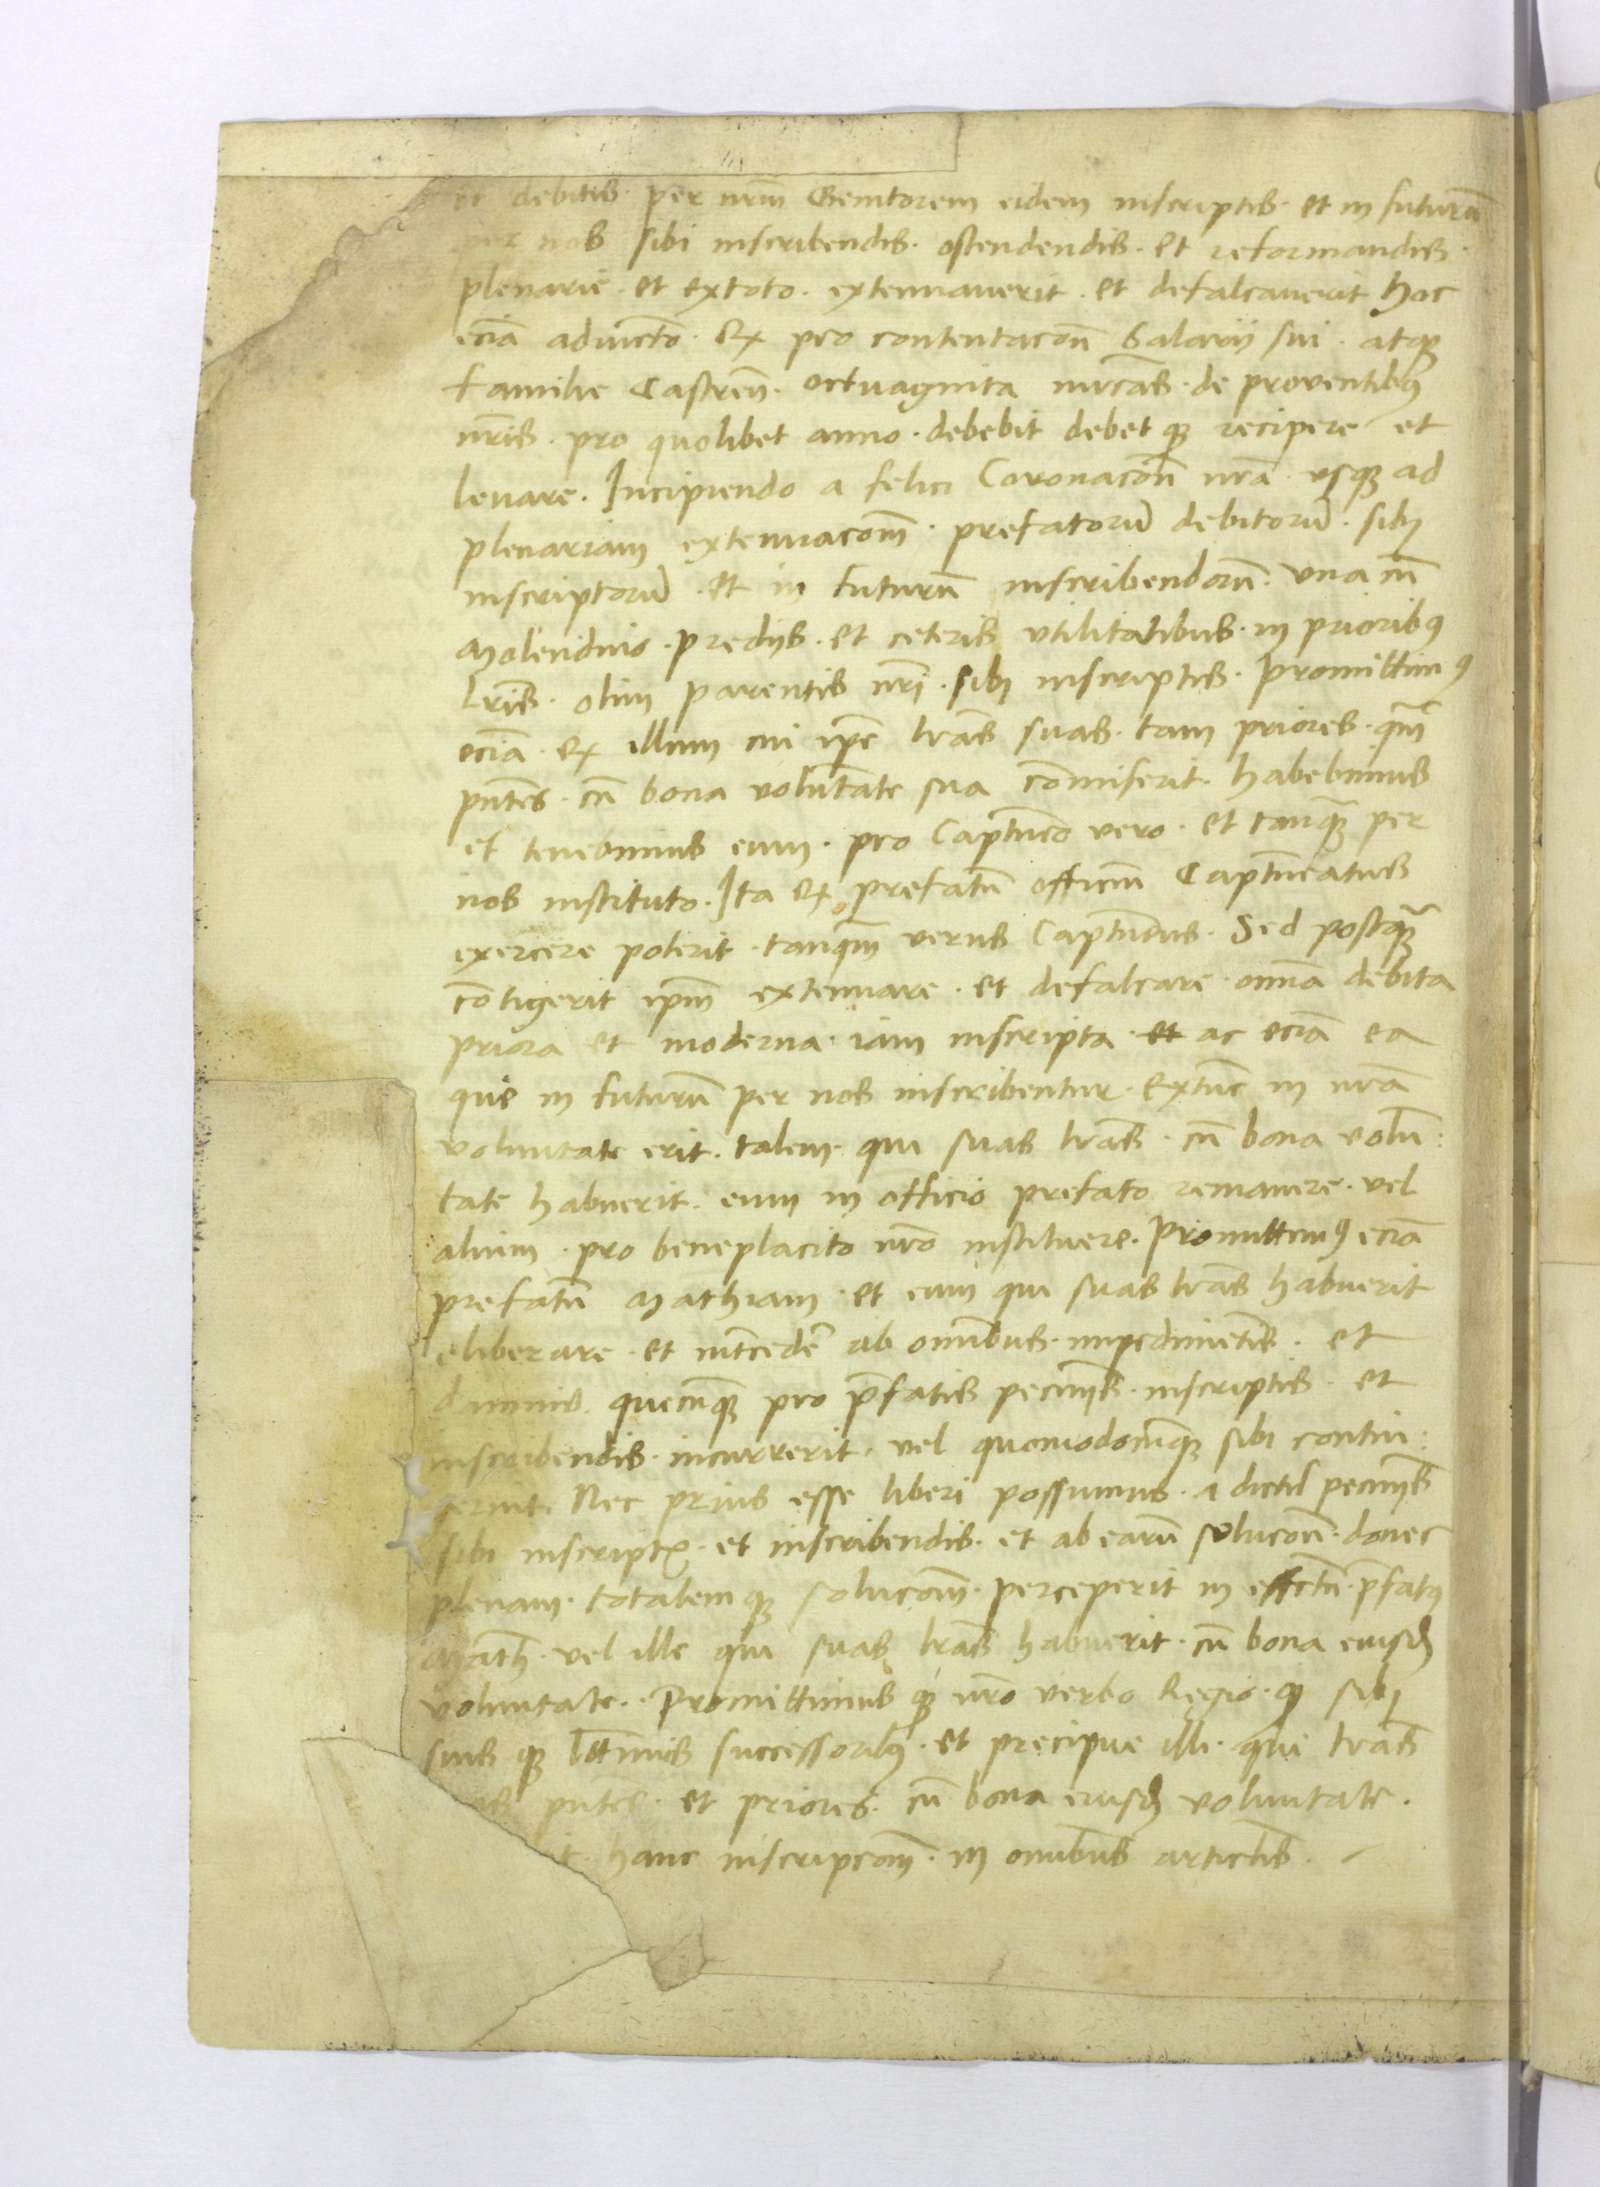 et debitis per nr̄m Genitorem eidem inscriptis et in futurū
per nos sibi inscribendis ostendendis et reformandis
plenarie et extoto extenuauerit et defalcauerit hoc
eciā adiuncto ꝙ pro contentacōn̄ Salarii sui atqꝫ
familie Castren̄ octuaginta mr̄cas de prouentibꝫ
nr̄is pro quolibet anno debebit debetqꝫ recipere et
leuare. Incipiendo a felici Coronacōn̄ nr̄a usqꝫ ad
plenariam extenuacōm̄ prefatorū debitorū sibi
inscriptorū et in futurū inscribendorū una cū
Molendinis prediis et ceteris utilitatibus in prioribꝯ
lr̄is olim parentis nr̄i sibi inscriptis Promittimꝯ
eciā ꝙ illum cui ip̄e lr̄as suas tam priores qm̄
pn̄tes cū bona volūtate sua cōmiserit habebimus
et tenebimus eum pro Captūeo vero et tanqꝫ per
nos instituto. Ita ꝙ prefatū officiū Captūeatus
exercere poterit tanqm̄ verus Captūeus Sed postqꝫ
cōtigerit ip̄m extenuare et defalcare om̄ia debita
priora et moderna iam inscripta et ac eciā ea
que in futurū per nos inscribentur extūc in nr̄a
voluntate erit talem qui suas lr̄as cū bona volū:
tate habuerit eum in officio prefato remanere vel
alium pro beneplacito nr̄o instituere. Promittimꝯ eciā
prefatū Mathiam et eum qui suas lr̄as habuerit
eliberare et int̄cedē ab om̄ibus impedimētis et
damnis quecūqꝫ pro p̄fatis pecuniis inscriptis et
inscribendis incurrerit vel quomodocūqꝫ sibi contin:
gerint Nec prius esse liberi possumus a dictis pecuniis
sibi inscriptꝭ et inscribendis et ab earū solucōn̄ donec
plenam totalemqꝫ solucōm̄ perceperit in effectū p̄fatꝯ
Math̄ vel ille qui suas lr̄as habuerit cū bona eiusdꝫ
voluntate. Promittimus qꝫ nr̄o verbo Regio ꝙ sibi
suis qꝫ lttīmis successoribꝯ et precipue illi qui lr̄as
pn̄tes et priores cū bona eiusdꝫ voluntate.
hanc inscripcōm̄ in om̄ibus articlis